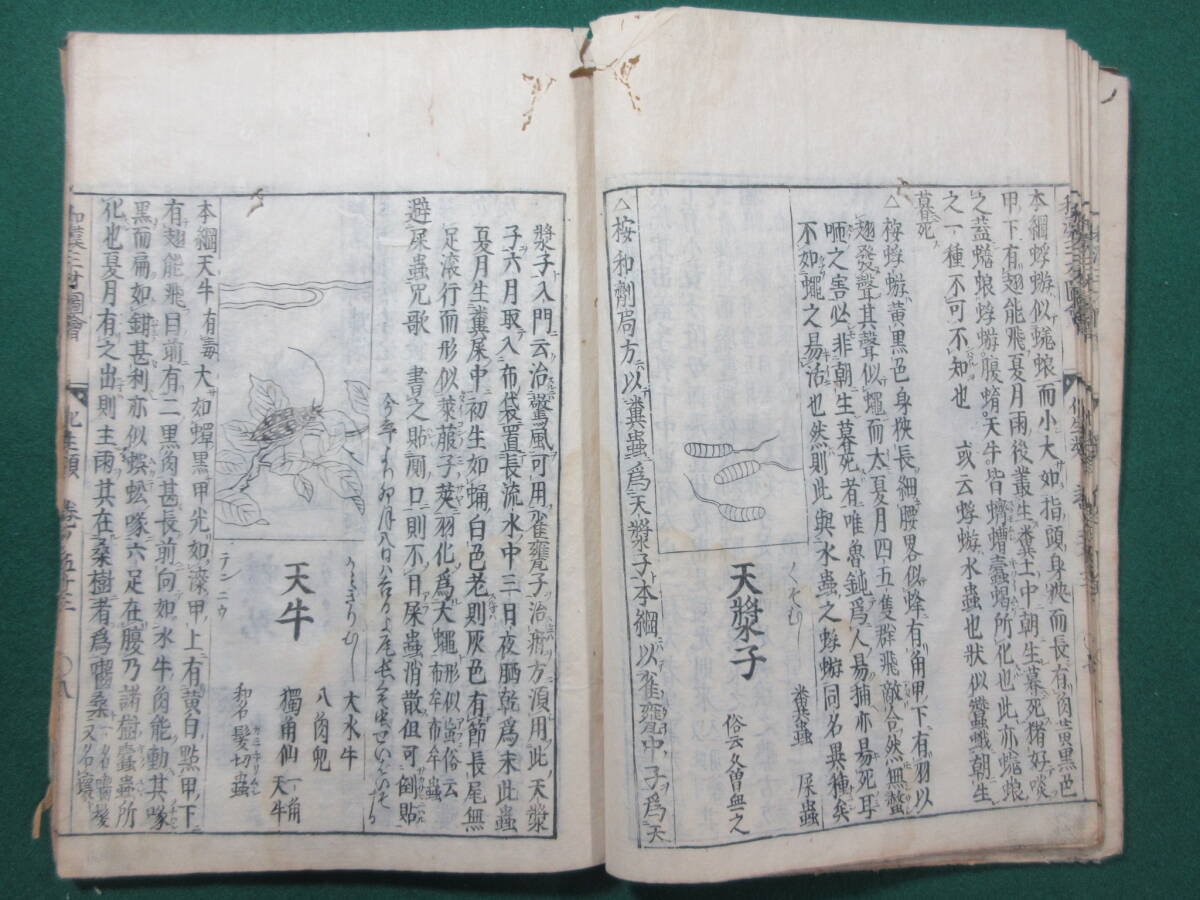 本綱蜉蝣似蜣蜋而小大如指頭身狹而長有角黃黒色
甲下有翅能飛夏月雨後叢生糞土中朝生暮死猪好啖
之蓋蜣蜋蜉蝣腹蜟天牛皆蠐螬蠹蝎所化也此亦蜣蜋
之一種不可不知也　或云蜉蝣水蟲也狀似蠶蛾朝生
暮死
△按蜉蝣黃黒色身狹長細腰畧似蜂有角甲下有羽以
翅發聲其聲似蠅而太夏月四五隻群飛敵合然無螫
咂之害必非朝生暮死者唯魯鈍爲人易捕亦易死耳
不如蠅之易活也然則此與水蟲之蜉蝣同名異種矣
天漿子
くそむし
糞蟲　屎蟲
俗云久曽無之
△桉和劑局方以糞蟲爲天漿子本綱以雀甕中子爲天
漿子入門云治驚風可用雀甕子治疳方須用此天漿
子六月取入布袋置長流水中三日夜晒乾爲末此蟲
夏月生糞屎中初生如蛹白色老則灰色有節長尾無
足滚行而形似萊菔子莢羽化爲大蠅形似蝱俗云布牟布牟蟲
避屎蟲咒歌　書之貼厠口則不日屎蟲消散但可倒貼
天牛
テンニウ
かミきりむし
大水牛
八角兒
獨角仙一角天牛
和名髮切蟲
本綱天牛有毒大如蟬黒甲光如漆甲上有黃白點甲下
有翅能飛目前有二黒角甚長前向如水牛角能動其喙
黒而扁如鉗甚利亦似蜈蚣喙六足在腹乃諸樹蠹蟲所
化也夏月有之出則主雨其在桑樹者爲囓桑
和漢三才圖會
化生類